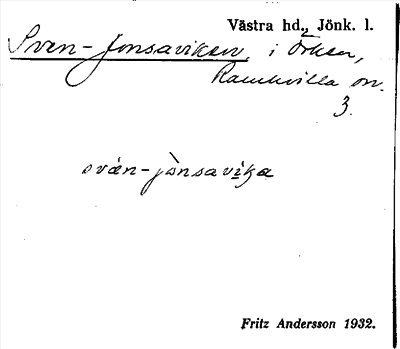 Västra hd., Jönk. l.
Sven-Jonsaviken, i Örken,
Ramkvilla sn.
3.
svän-jònsavika
Fritz Andersson 1932.